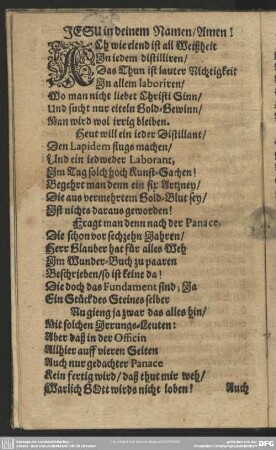 JESU in deinem Namen/Amen!
ACh wie elend ist all Weißheit
In iedem distilliren/
Das Thun ist lauter Nichtigkeit
In allem laboriren/
Wo man nicht liebet Christi Sinn/
Und sucht nur eiteln Gold-Gewinn/
Man wird wol irrig bleiben.
Heut will ein ieder Distillant/
Den Lapidem flugs machen/
Und ein iedweder Laborant,
Im Tug solch hoch Kunst-Sachen!
Begehrt man denn ein fix Artzney/
Die aus vermehrtem Gold-Blut sey/
Ist nichts daraus geworden!
Fragt man denn nach der Panace,
Die schon vor sechzehn Jahren/
Herr Glauber hat für alles Weh
Im Wunder-Buch zu paaren
Beschrieben/so ist keine da!
Die doch das Fundament sind; Ja
Ein Stück des Steines selber
Nu gieng ja zwar das alles hin/
Mit solchen Irrungs-Leuten:
Aber daß in der Officin
Allhier auff vieren Seiten
Auch nur gedachter Panace
Kein fertig wird/daß thut mir weh/
Warlich GOtt wirds nicht loben!
Auch